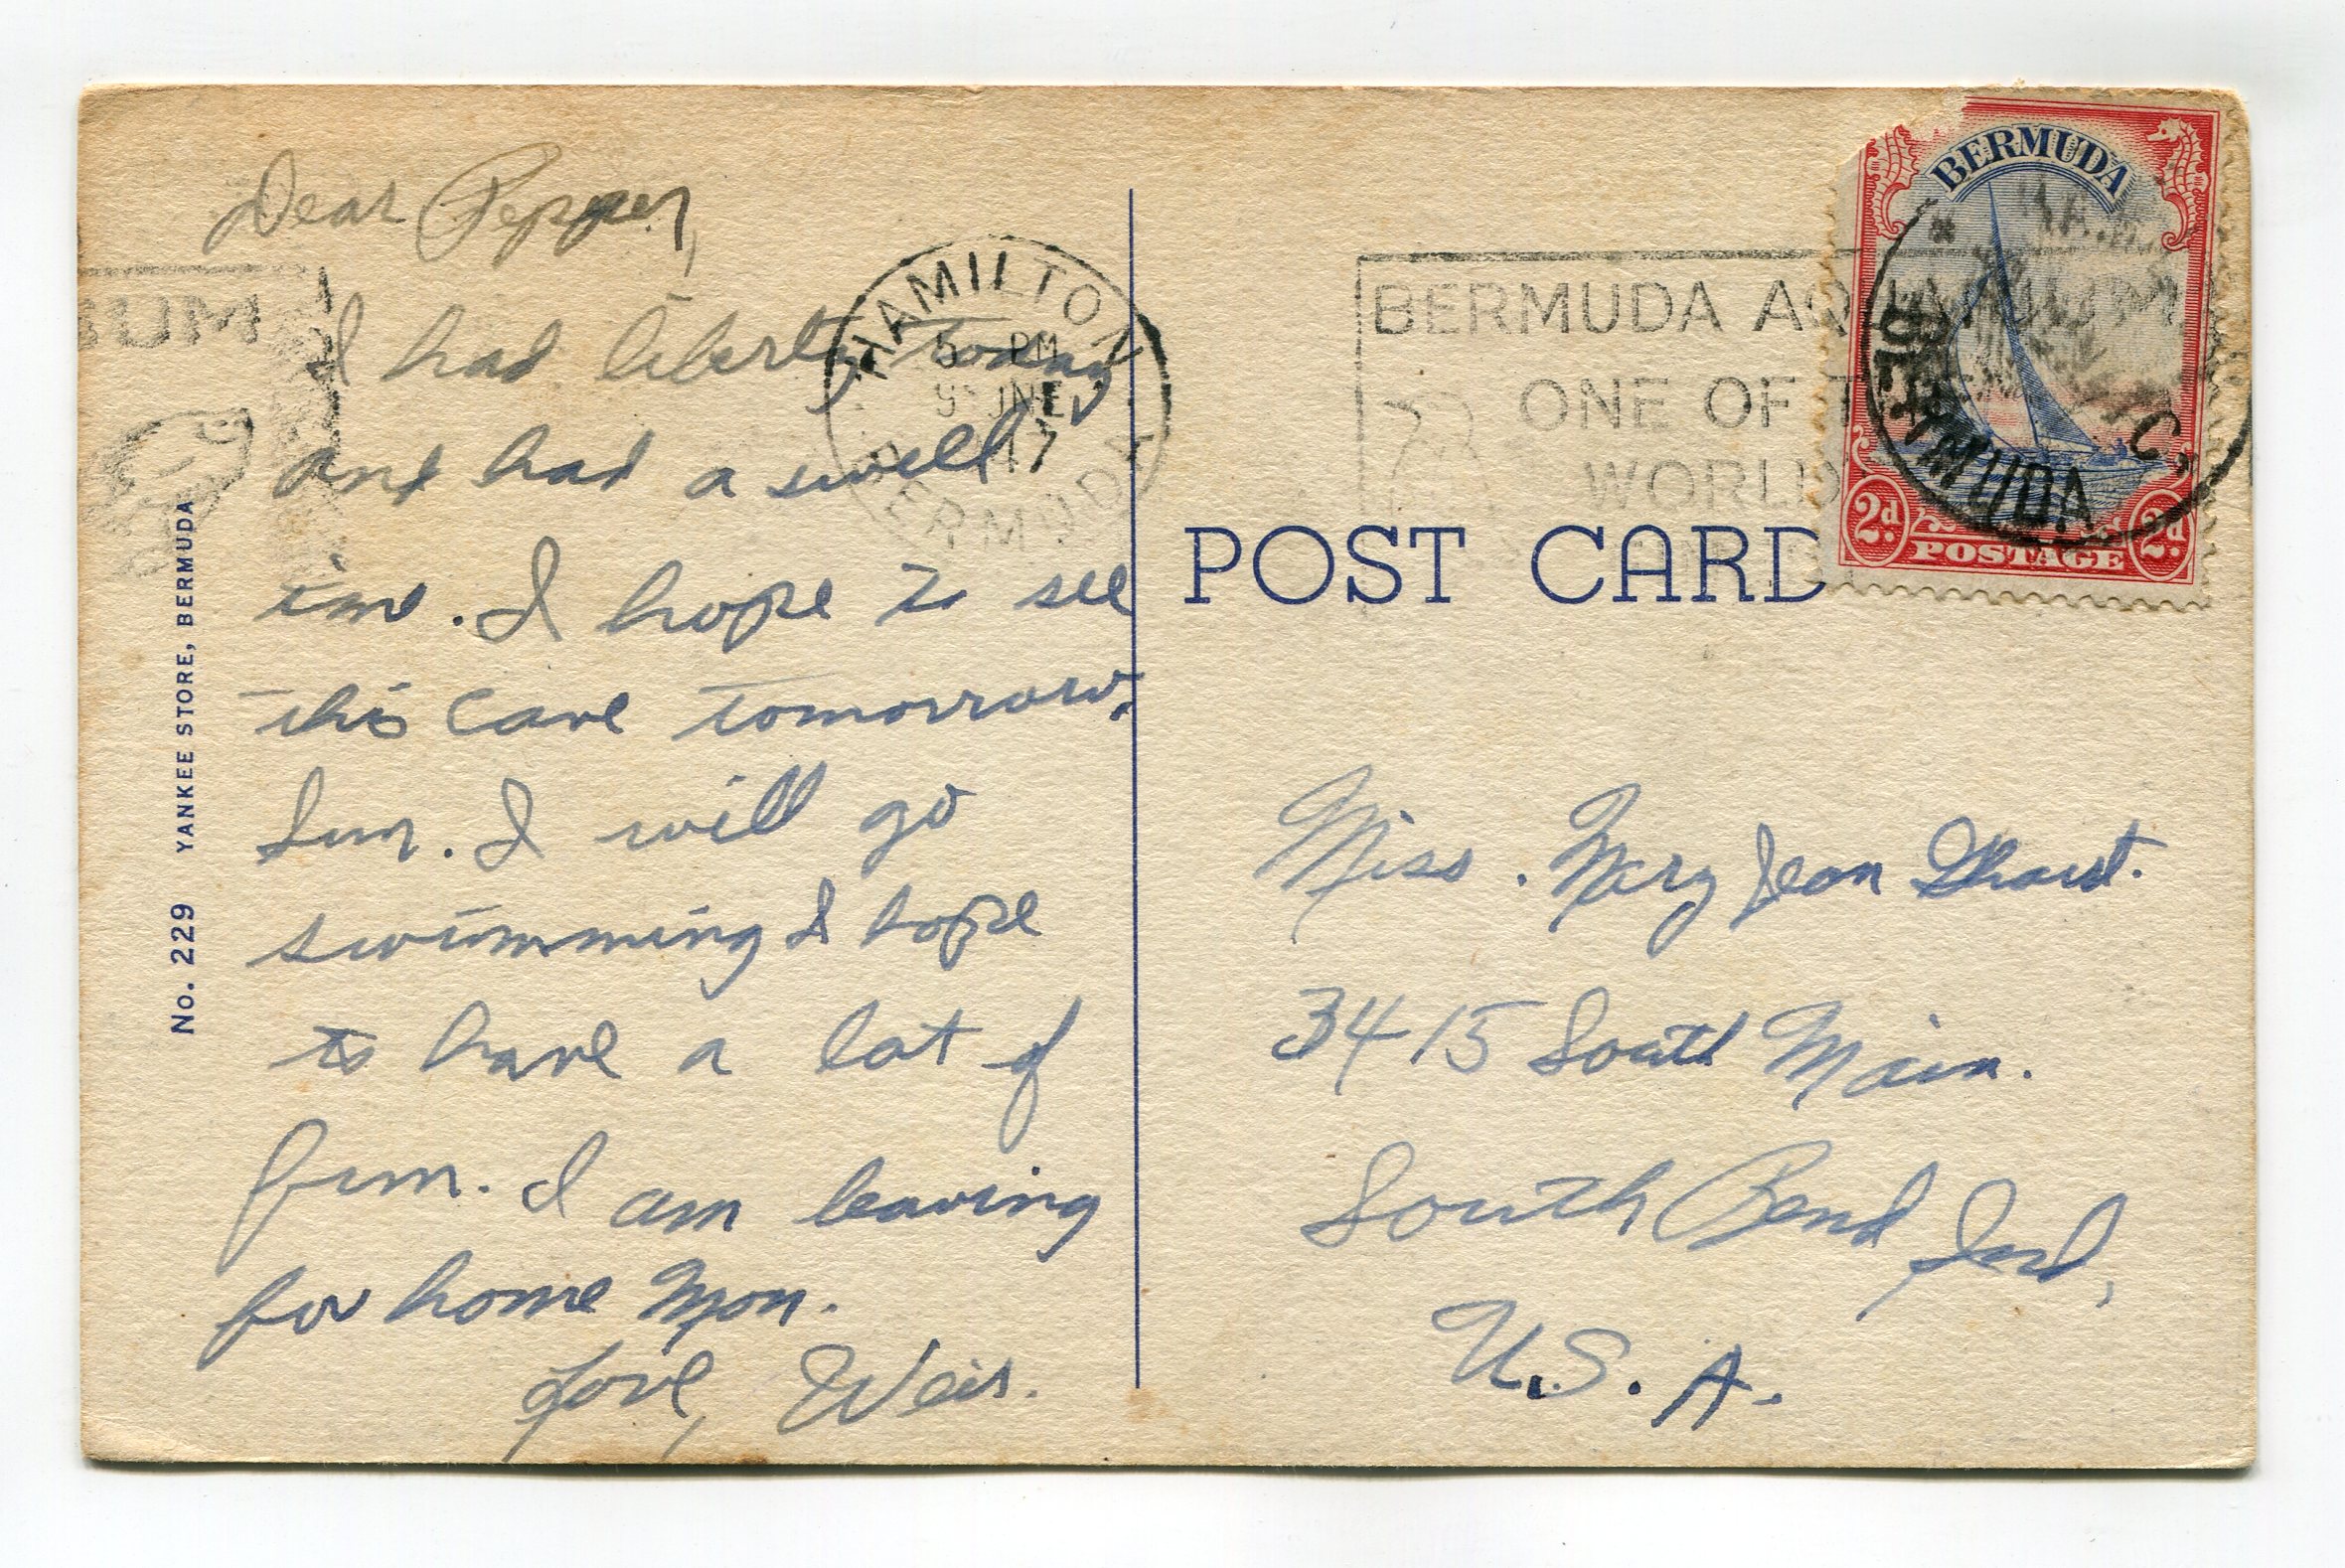 Dear Pepper,
I had liberty today,
and had a swell
time. I hope to see
this cave tomorrow,
Sun. I will go
swimming I hope
to have a lot of
fun. I am leaving
for home Mon.
Love, Weis.
No. 229 YANKEE STORE, BERMUDA
HAMILTON
5 PM
9 JNE
47
BERMUDA
BERMUDA AQUARIUM
ONE OF T
WORLD
POST CARD
BERMUDA
2d. POSTAGE 2d.
BERMUDA
Miss. Mary Jean
3415 South Main.
South Bend Ind,
U.S.A.